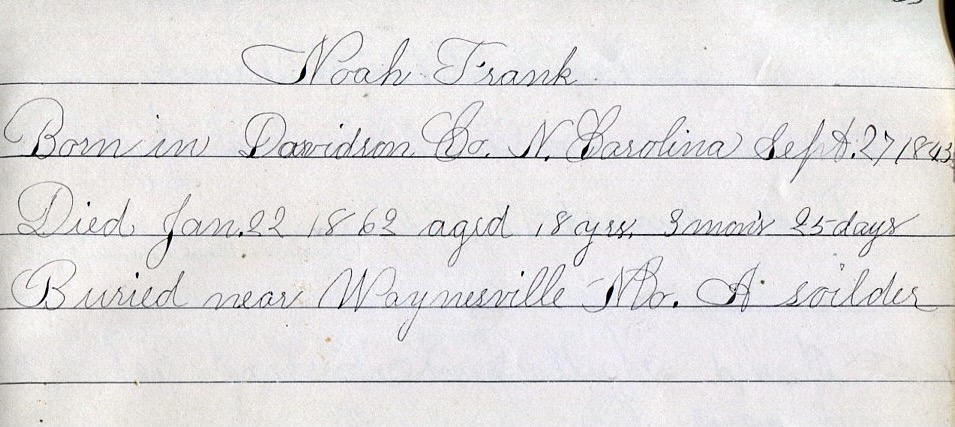 Noah Frank
Born in Davidson Co. N. Carolina Sept. 27 1843
Died Jan. 22 1862 aged 18 yrs. 3 mon's 25 days
Buried near Waynesville Mo. A soilder